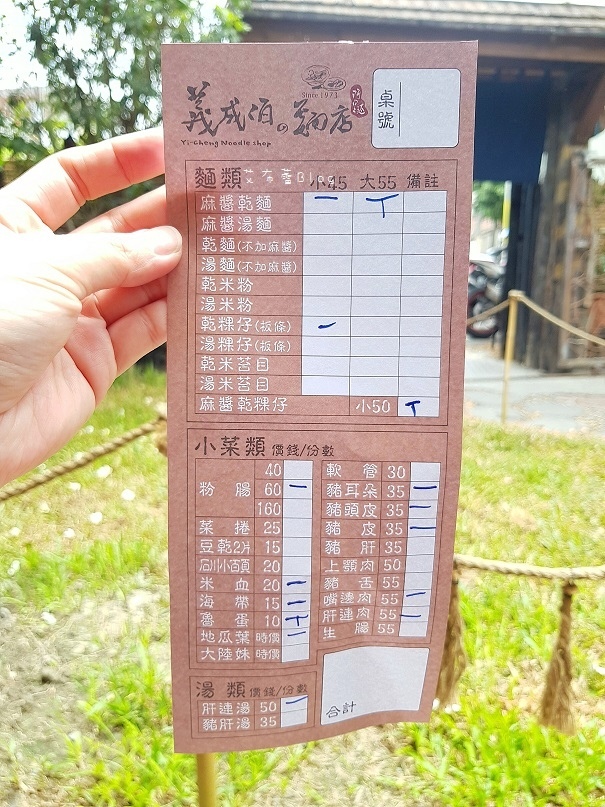 Since 1973
義成伯の麵店
Yi-Cheng Noodle shop
桌號
麵類 小45 大55 備註
艾布蕾Blog
麻醬乾麵 一 丅
麻醬湯麵
乾麵(不加麻醬)
湯麵(不加麻醬)
乾米粉
湯米粉
乾粿仔(粄條) 一
湯粿仔(粄條)
乾米苔目
湯米苔目
麻醬乾粿仔 小50 丅
小菜類 價錢/份數
粉腸
40
60 一
160
菜捲 25
豆乾2片 15
滷小百頁 20
米血 20 一
海帶 15 一
魯蛋 10
地瓜葉 時價 一
大陸妹 時價
軟管 30
豬耳朵 35 一
豬頭皮 35 一
豬皮 35 一
豬肝 35
上顎肉 50
豬舌 55
嘴邊肉 55 一
肝連肉 55 一
生腸 55
湯類 價錢/份數
肝連湯 50 一
豬肝湯 35
合計